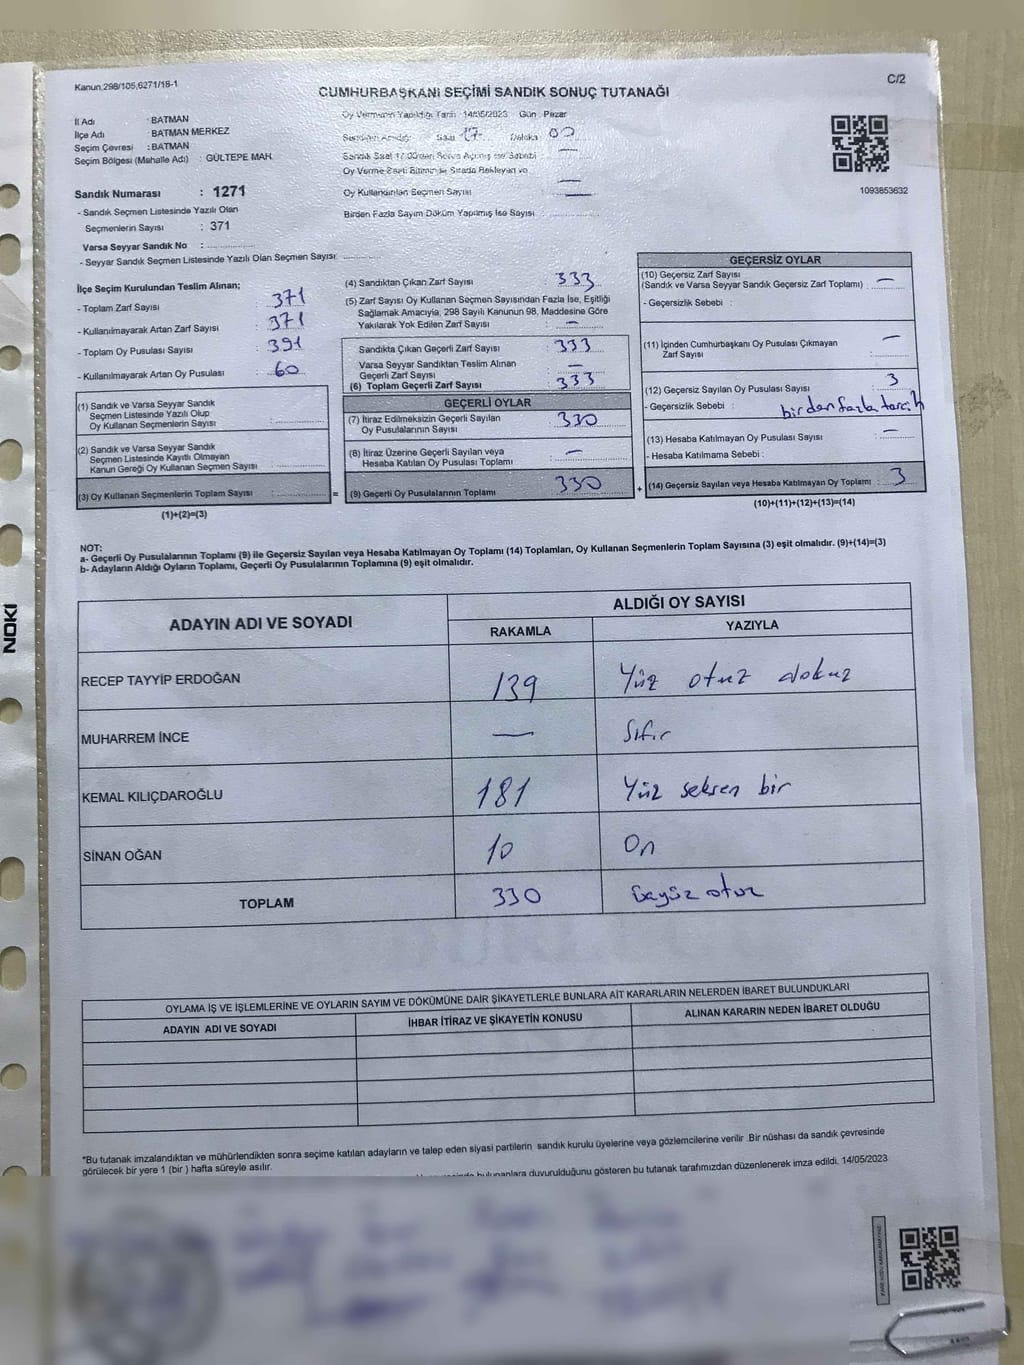 Kanun,298/105,6271/18-1
C/2
CUMHURBAŞKANI SEÇİMİ SANDIK SONUÇ TUTANAĞI
İl Adı : BATMAN
İlçe Adı : BATMAN MERKEZ
Seçim Çevresi : BATMAN
Seçim Bölgesi (Mahalle Adı) : GÜLTEPE MAH.
Oy Vermenin Yapıldığı Tarih 14/05/2023 Gün : Pazar
Saat 17 Dakika 00
Oy Kullandırılan Seçmen Sayısı —
Birden Fazla Sayım Döküm Yapılmış İse Sayısı :
1093853632
Sandık Numarası : 1271
- Sandık Seçmen Listesinde Yazılı Olan
Seçmenlerin Sayısı : 371
Varsa Seyyar Sandık No :
- Seyyar Sandık Seçmen Listesinde Yazılı Olan Seçmen Sayısı:
İlçe Seçim Kurulundan Teslim Alınan;
- Toplam Zarf Sayısı : 371
- Kullanılmayarak Artan Zarf Sayısı : 371
- Toplam Oy Pusulası Sayısı : 391
- Kullanılmayarak Artan Oy Pusulası : 60
(1) Sandık ve Varsa Seyyar Sandık
Seçmen Listesinde Yazılı Olup
Oy Kullanan Seçmenlerin Sayısı :
(2) Sandık ve Varsa Seyyar Sandık
Seçmen Listesinde Kayıtlı Olmayan
Kanun Gereği Oy Kullanan Seçmen Sayısı :
(3) Oy Kullanan Seçmenlerin Toplam Sayısı :
(1)+(2)=(3)
(4) Sandıktan Çıkan Zarf Sayısı : 333
(5) Zarf Sayısı Oy Kullanan Seçmen Sayısından Fazla İse, Eşitliği
Sağlamak Amacıyla, 298 Sayılı Kanunun 98. Maddesine Göre
Yakılarak Yok Edilen Zarf Sayısı : —
Sandıkta Çıkan Geçerli Zarf Sayısı : 333
Varsa Seyyar Sandıktan Teslim Alınan
Geçerli Zarf Sayısı : —
(6) Toplam Geçerli Zarf Sayısı : 333
GEÇERLİ OYLAR
(7) İtiraz Edilmeksizin Geçerli Sayılan
Oy Pusulalarının Sayısı : 330
(8) İtiraz Üzerine Geçerli Sayılan veya
Hesaba Katılan Oy Pusulası Toplamı : —
= (9) Geçerli Oy Pusulalarının Toplamı : 330 +
GEÇERSİZ OYLAR
(10) Geçersiz Zarf Sayısı
(Sandık ve Varsa Seyyar Sandık Geçersiz Zarf Toplamı) : —
- Geçersizlik Sebebi :
(11) İçinden Cumhurbaşkanı Oy Pusulası Çıkmayan
Zarf Sayısı : —
(12) Geçersiz Sayılan Oy Pusulası Sayısı : 3
- Geçersizlik Sebebi : birden fazla tercih
(13) Hesaba Katılmayan Oy Pusulası Sayısı : —
- Hesaba Katılmama Sebebi :
(14) Geçersiz Sayılan veya Hesaba Katılmayan Oy Toplamı : 3
(10)+(11)+(12)+(13)=(14)
NOT:
a- Geçerli Oy Pusulalarının Toplamı (9) ile Geçersiz Sayılan veya Hesaba Katılmayan Oy Toplamı (14) Toplamları, Oy Kullanan Seçmenlerin Toplam Sayısına (3) eşit olmalıdır. (9)+(14)=(3)
b- Adayların Aldığı Oyların Toplamı, Geçerli Oy Pusulalarının Toplamına (9) eşit olmalıdır.
ADAYIN ADI VE SOYADI
ALDIĞI OY SAYISI
RAKAMLA YAZIYLA
RECEP TAYYİP ERDOĞAN 139 Yüz otuz dokuz
MUHARREM İNCE — Sıfır
KEMAL KILIÇDAROĞLU 181 Yüz seksen bir
SİNAN OĞAN 10 On
TOPLAM 330 üçyüz otuz
OYLAMA İŞ VE İŞLEMLERİNE VE OYLARIN SAYIM VE DÖKÜMÜNE DAİR ŞİKAYETLERLE BUNLARA AİT KARARLARIN NELERDEN İBARET BULUNDUKLARI
ADAYIN ADI VE SOYADI İHBAR İTİRAZ VE ŞİKAYETİN KONUSU ALINAN KARARIN NEDEN İBARET OLDUĞU
*Bu tutanak imzalandıktan ve mühürlendikten sonra seçime katılan adayların ve talep eden siyasi partilerin sandık kurulu üyelerine veya gözlemcilerine verilir .Bir nüshası da sandık çevresinde
görülecek bir yere 1 (bir ) hafta süreyle asılır.
bulunanlara duyurulduğunu gösteren bu tutanak tarafımızdan düzenlenerek imza edildi. 14/05/2023
NOKI